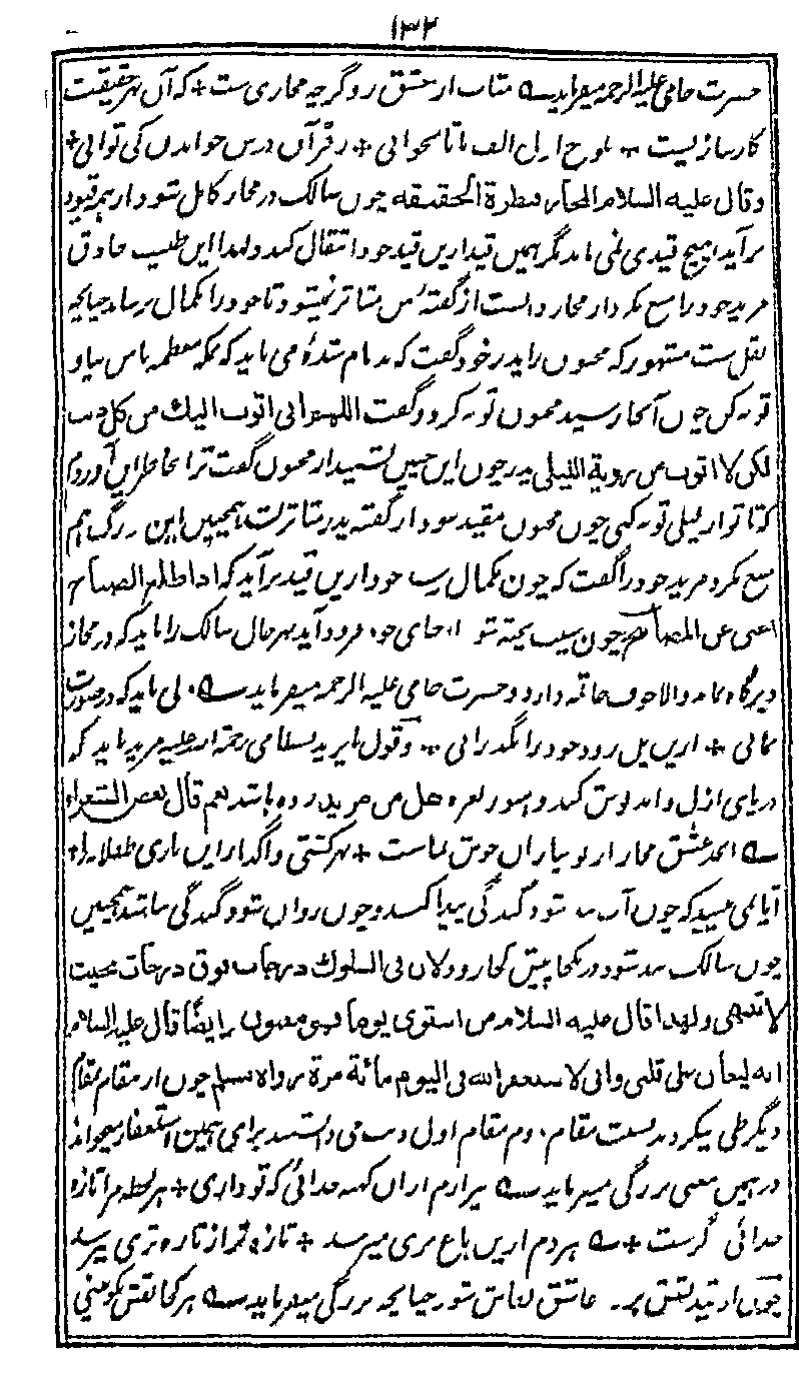 ۱۳۲
حضرت جامی علیه الرحمه میفرماید متاب از عشق رو گرچه مجازی ست + که آن بهر حقیقت
کارسازیست + بلوح اول الف با تا نخوانی + ز قرآن درس خواندن کی توانی +
وقال علیه السلام المجاز قنطرة الحقیقه چون سالک در مجاز کامل شود از همه قیود
برآید هیچ قیدی نمی ماند مگر همین قید ازین قید خود انتقال کند ولهذا این طبیب حاذق
مرید خود را منع نکرد از مجاز دانست از گفته من متأثر نمیشود تا خود را بکمال رساند چنانچه
نقل ست مشهور که مجنون را پدر خود گفت که بدنام شدهٔ می باید که مکه معظمه باس بیا و
توبه کن چون آنجا رسید مجنون توبه کرد و گفت اللهم انی اتوب الیك من كل ذنب
لكن لا اتوب من رویة اللیلی پدر چون این چنین شنید از مجنون گفت ترا بخاطر این آوردم
که تا تو از لیلی توبه کنی چون مجنون مقید بود از گفته پدر متأثر نشد همچنین این بزرگ هم
منع نکرد مرید خود را گفت که چون بکمال رسد خود ازین قید برآید که اذا طلع الصباح
چون سیب پخته شود از جای خود فرود آید بهرحال سالک را باید که در مجاز
دیرگاه نماند والا خوف خاتمه دارد و حضرت جامی علیه الرحمه میفرماید ولی باید که در صورت
نمانی + ازین پل زود خود را بگذرانی + وقول بایزید بسطامی رحمة الله علیه مرید باید که
دریای ازل و ابد نوش کند و هنوز نعره هل من مزید زده باشد نعم قال بعض الشعراء
احمد عشق مجاز از نو بیازان خوش نماست + بهر کشتی واگذار این بازی طفلانه را
آیا نمی بینید که چون آب بند شود گندگی پیدا کند و چون روان شود گندگی نباشد همچنین
چون سالک بند شود در یکجا پیش کجا رود لان فی السلوك درجات فوق درجات بحیث
لا تنتهی ولهذا قال علیه السلام من استوی یوماه فهو مغبون وایضًا قال علیه السلام
انه لیغان علی قلبی وانی لاستغفر الله فی الیوم مائة مرة رواه مسلم چون از مقام بمقام
دیگر طی میکرد بنسبت مقام دوم مقام اول ذنب می دانستند برای همین استغفار میخواند
در همین معنی بزرگی میفرماید بیزارم ازان کهنه خدائی که تو داری + هر لحظه مرا تازه
خدائی دگرست + هر دم ازین باغ بری میرسد + تازه تر از تازه تری میرسد
چون از قید نقش عاشق نقاش شود چنانچه بزرگی میفرماید هر کجا نقش نکو بینی